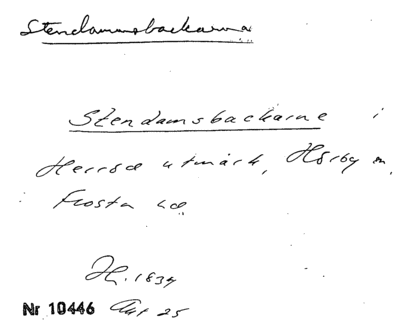 Stendamsbackarna
Stendamsbackarne i
Herrsd utmark, Hörby sn,
Frosta hd
H. 1834
Nr 10446 Akt 25